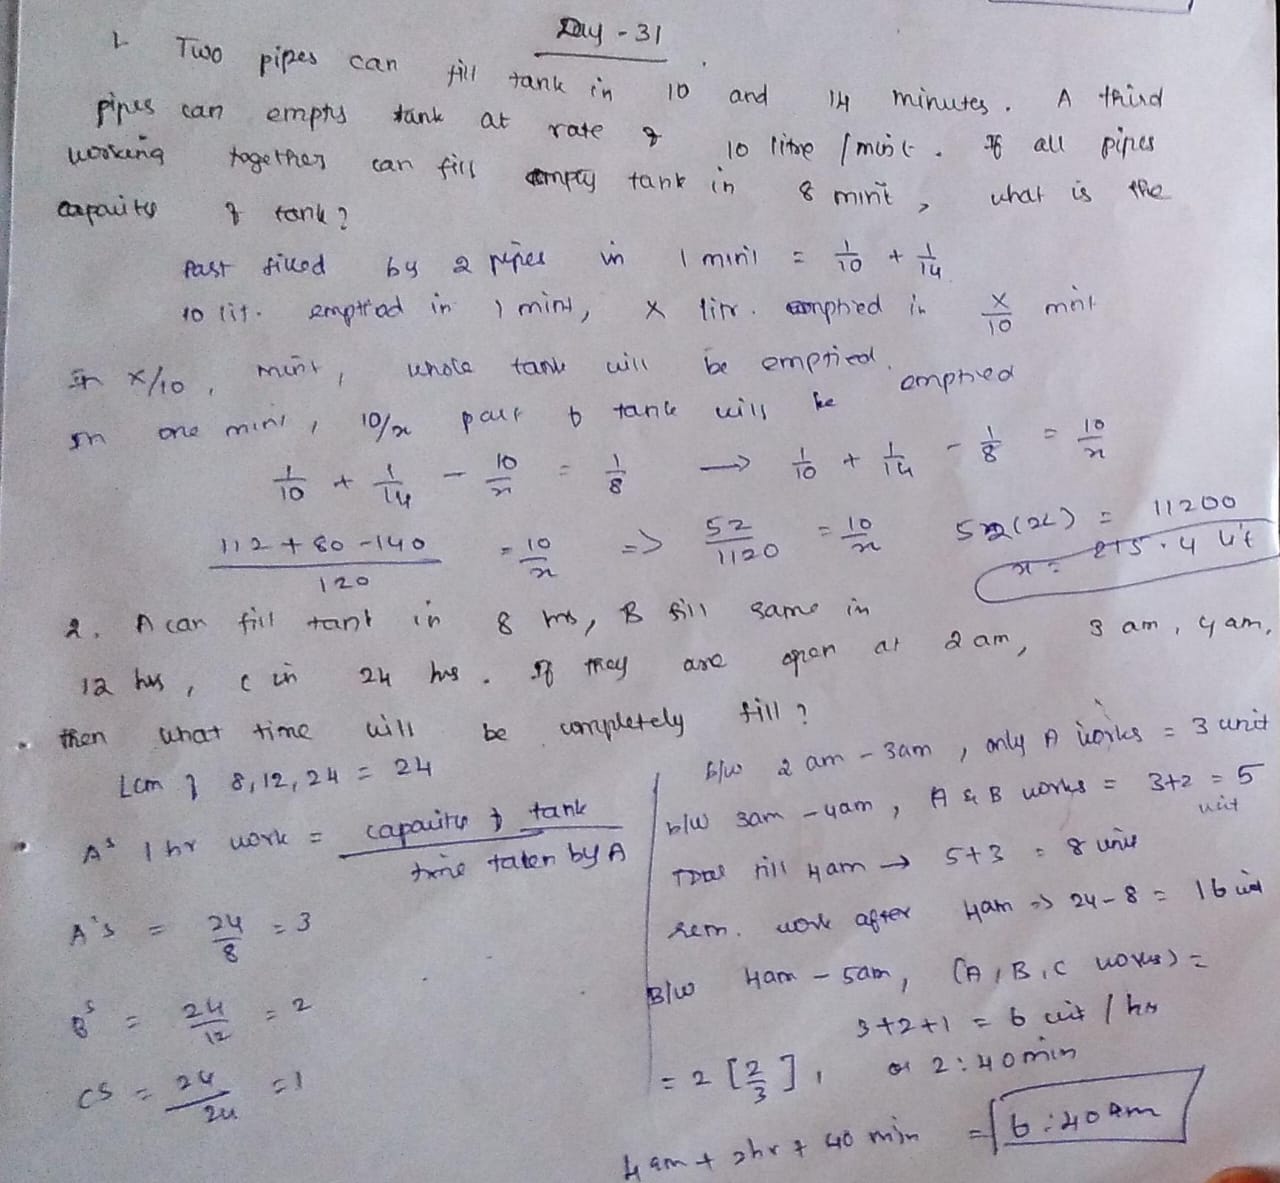 Day - 31
1. Two pipes can fill tank in 10 and 14 minutes. A third
pipes can empty tank at rate of 10 litre / mint. If all pipes
working together can fill empty tank in 8 mint, what is the
capacity of tank?
Part filled by 2 pipes in 1 mint = 1/10 + 1/14
10 lit. emptied in 1 mint, x litr. emptied in x/10 mint
In x/10, mint, whole tank will be emptied.
In one mint, 10/x part of tank will be emptied
1/10 + 1/14 - 10/x = 1/8 → 1/10 + 1/14 - 1/8 = 10/x
112 + 80 - 140 / 120 = 10/x => 52/1120 = 10/x 52(x) = 11200
x = 215.4 lit
2. A can fill tank in 8 hrs, B fill same in
12 hrs, C in 24 hrs. If they are open at 2 am, 3 am, 4 am,
then what time will be completely fill?
Lcm of 8, 12, 24 = 24
A's 1 hr work = capacity of tank / time taken by A
A's = 24/8 = 3
B's = 24/12 = 2
C's = 24/24 = 1
b/w 2 am - 3am, only A works = 3 unit
b/w 3am - 4am, A & B works = 3+2 = 5 unit
Total till 4am → 5+3 = 8 unit
rem. work after 4am => 24 - 8 = 16 unit
B/w 4am - 5am, (A, B, C works) =
3+2+1 = 6 unit / hr
= 2 [2/3], or 2:40 min
4 am + 2hr + 40 min = 6:40 am